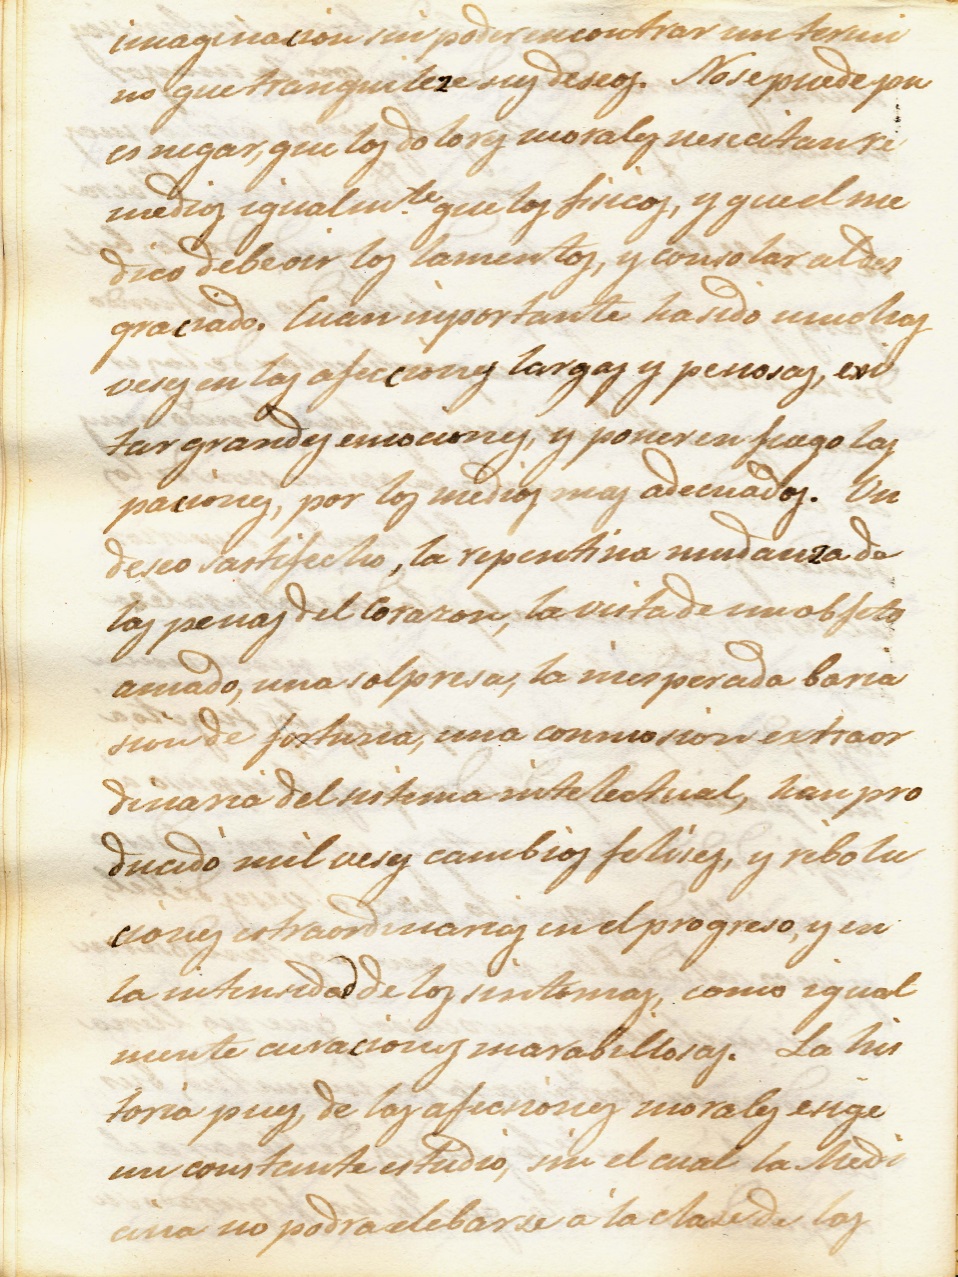 imaginacion sin poder encontrar un termi
no que tranquileze sus deseos. No se puede pu
es negar, que los dolores morales nesecitan re
medios igualm.te que los fisicos, y que el me
dico debe oir los lamentos, y consolar al des
graciado. Cuan importante ha sido muchas
veses en las afecciones largas y penosas, exi
tar grandes emociones, y poner en fuego las
paciones, por los medios mas adecuados. Un
deseo sastifecho, la repentina mudanza de
las penas del Corazon, la vista de un objeto
amado, una solpresa, la inesperada baria
sion de fortuna, una conmosion extraor
dinaria del sistema intelectual, han pro
ducido mil veses cambios felises, y rebolu
ciones estraordinarias en el progreso, y en
la intensidad de los sintomas, como igual
mente curaciones marabillosas. La his
toria pues, de las afecsiones morales esige
un constante estudio, sin el cual la Medi
cina no podra elebarse á la clase de las